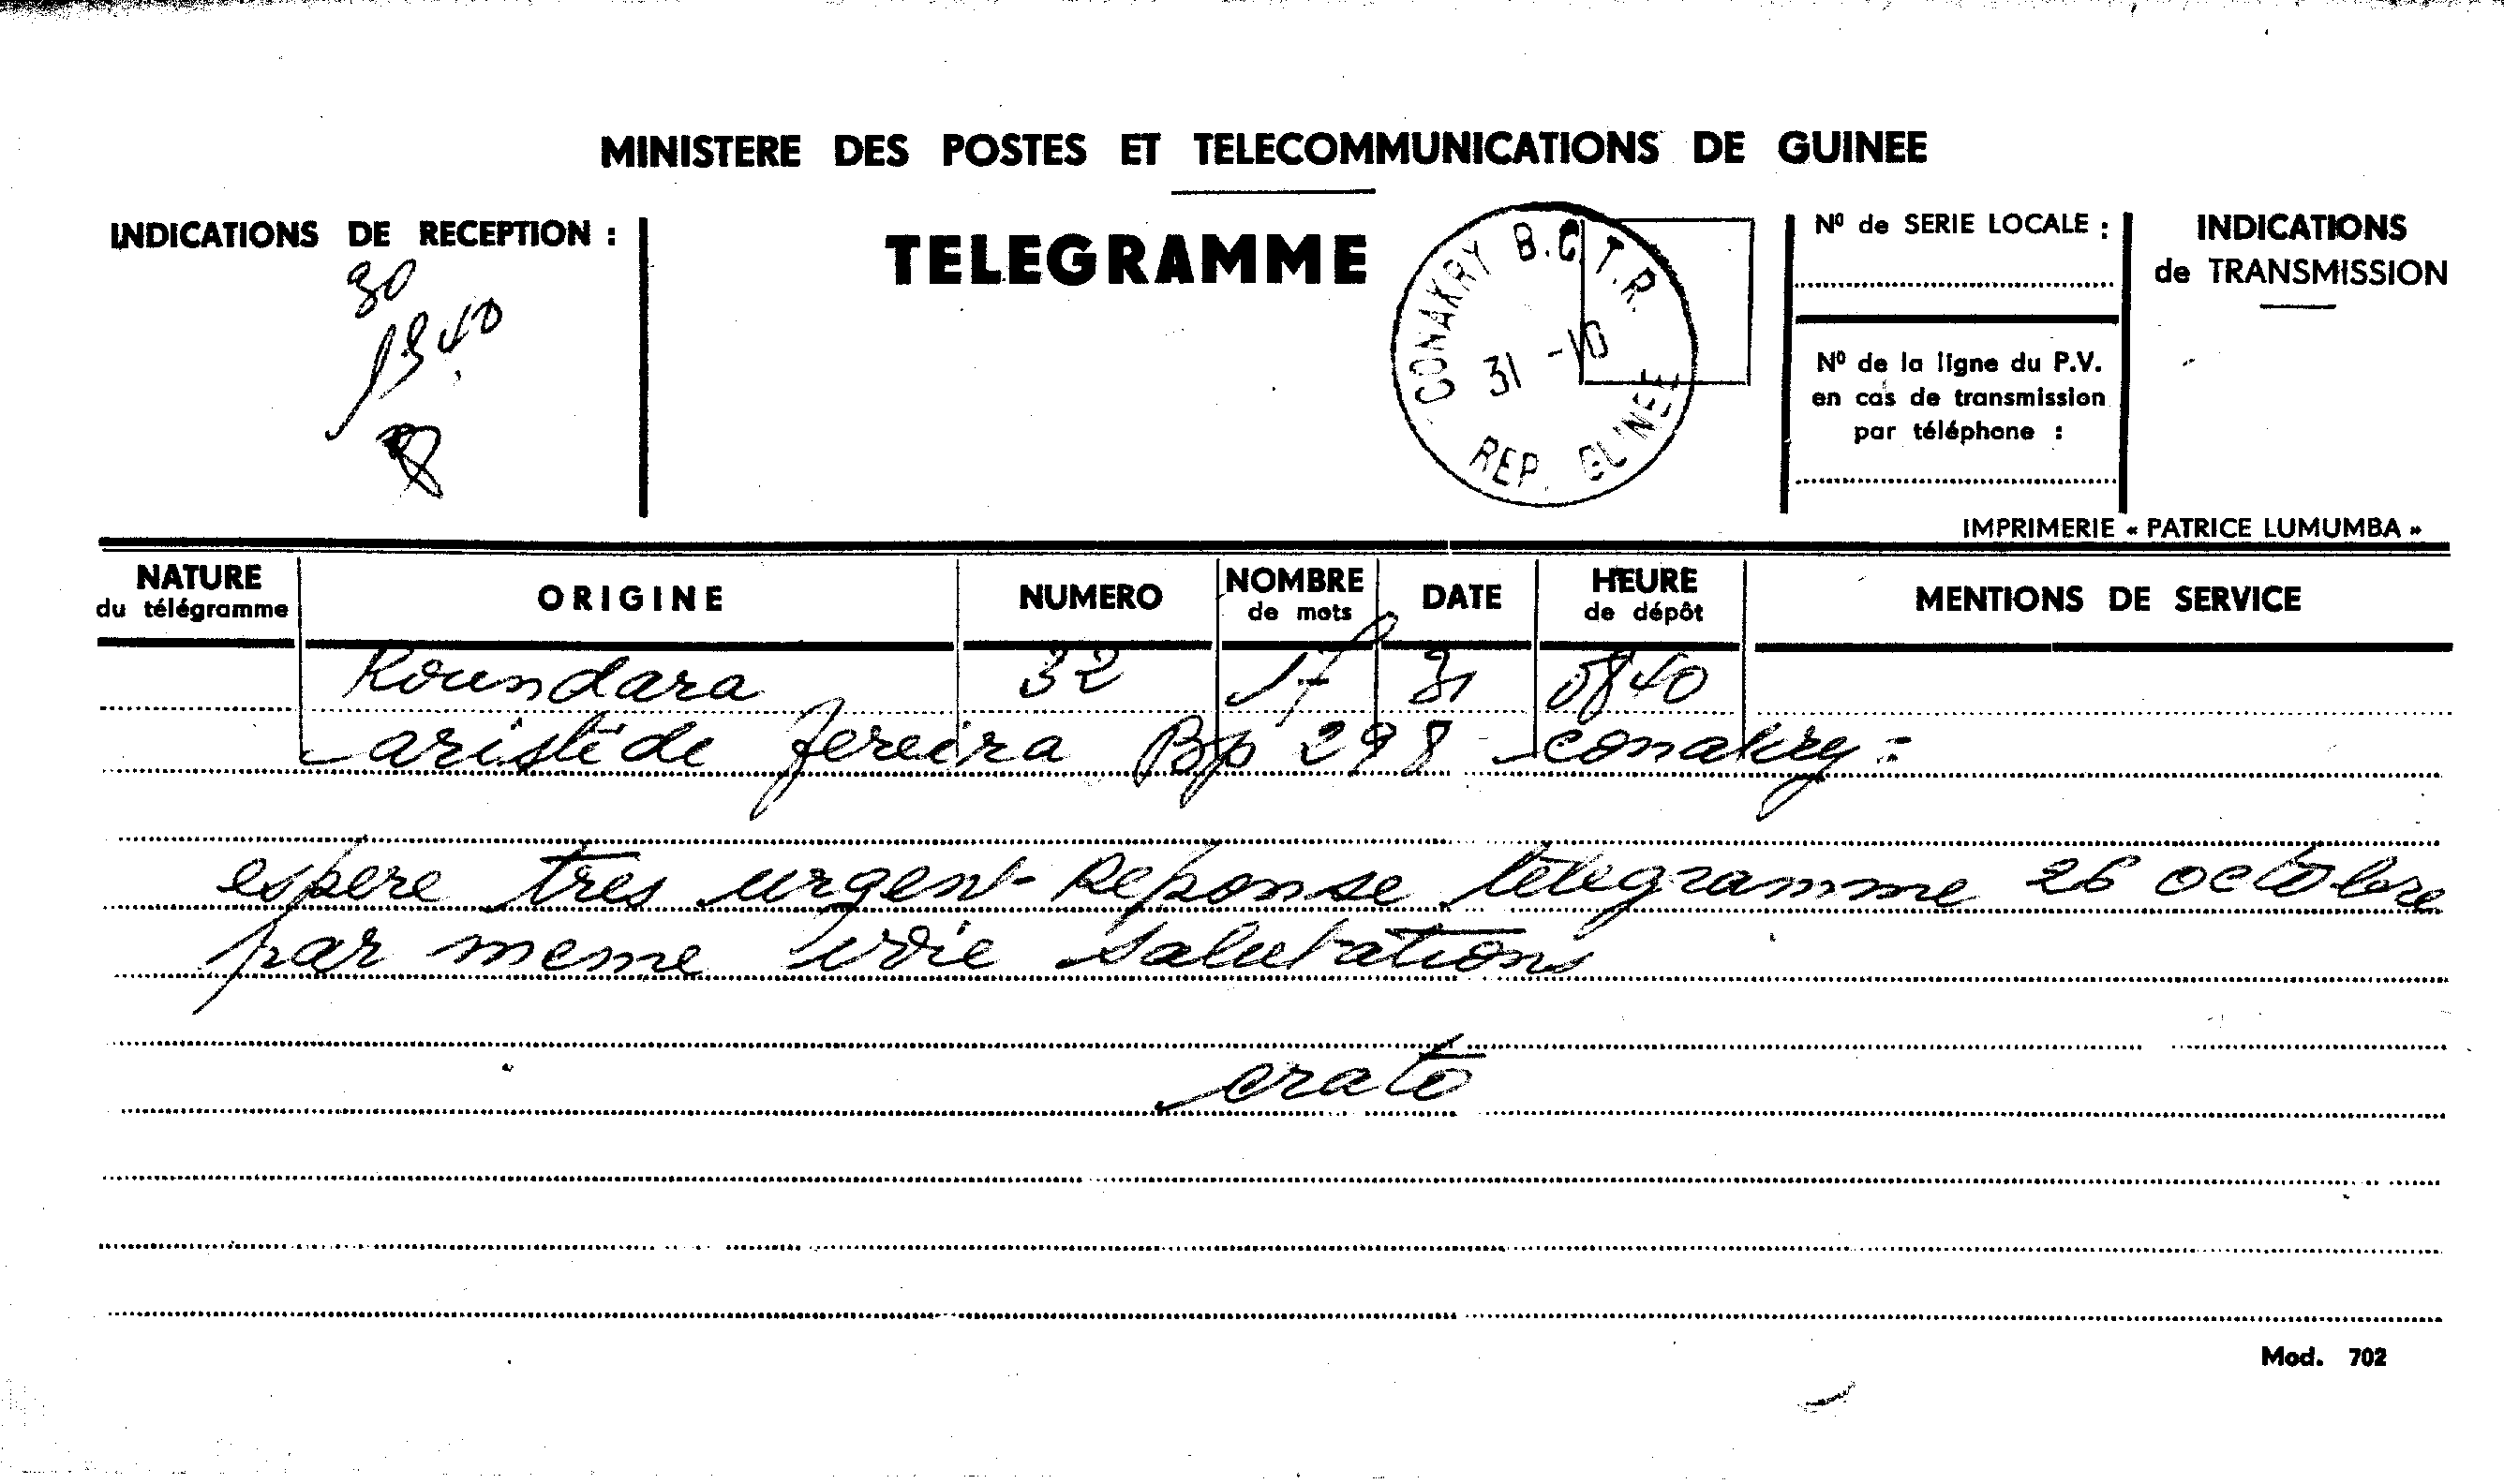 MINISTERE DES POSTES ET TELECOMMUNICATIONS DE GUINEE
INDICATIONS DE RECEPTION :
30
1340
TELEGRAMME
CONAKRY B.C.T.R.
31 -10
REP. GUINEE
Nº de SERIE LOCALE :
Nº de la ligne du P.V.
en cas de transmission
par téléphone :
INDICATIONS
de TRANSMISSION
IMPRIMERIE « PATRICE LUMUMBA »
NATURE
du télégramme
ORIGINE
NUMERO
NOMBRE
de mots
DATE
HEURE
de dépôt
MENTIONS DE SERVICE
Koundara 32 17 31 0840
aristide Pereira Bp 298 conakry :
espere tres urgent Reponse telegramme 26 octobre
par meme voie salutations
crato
Mod. 702